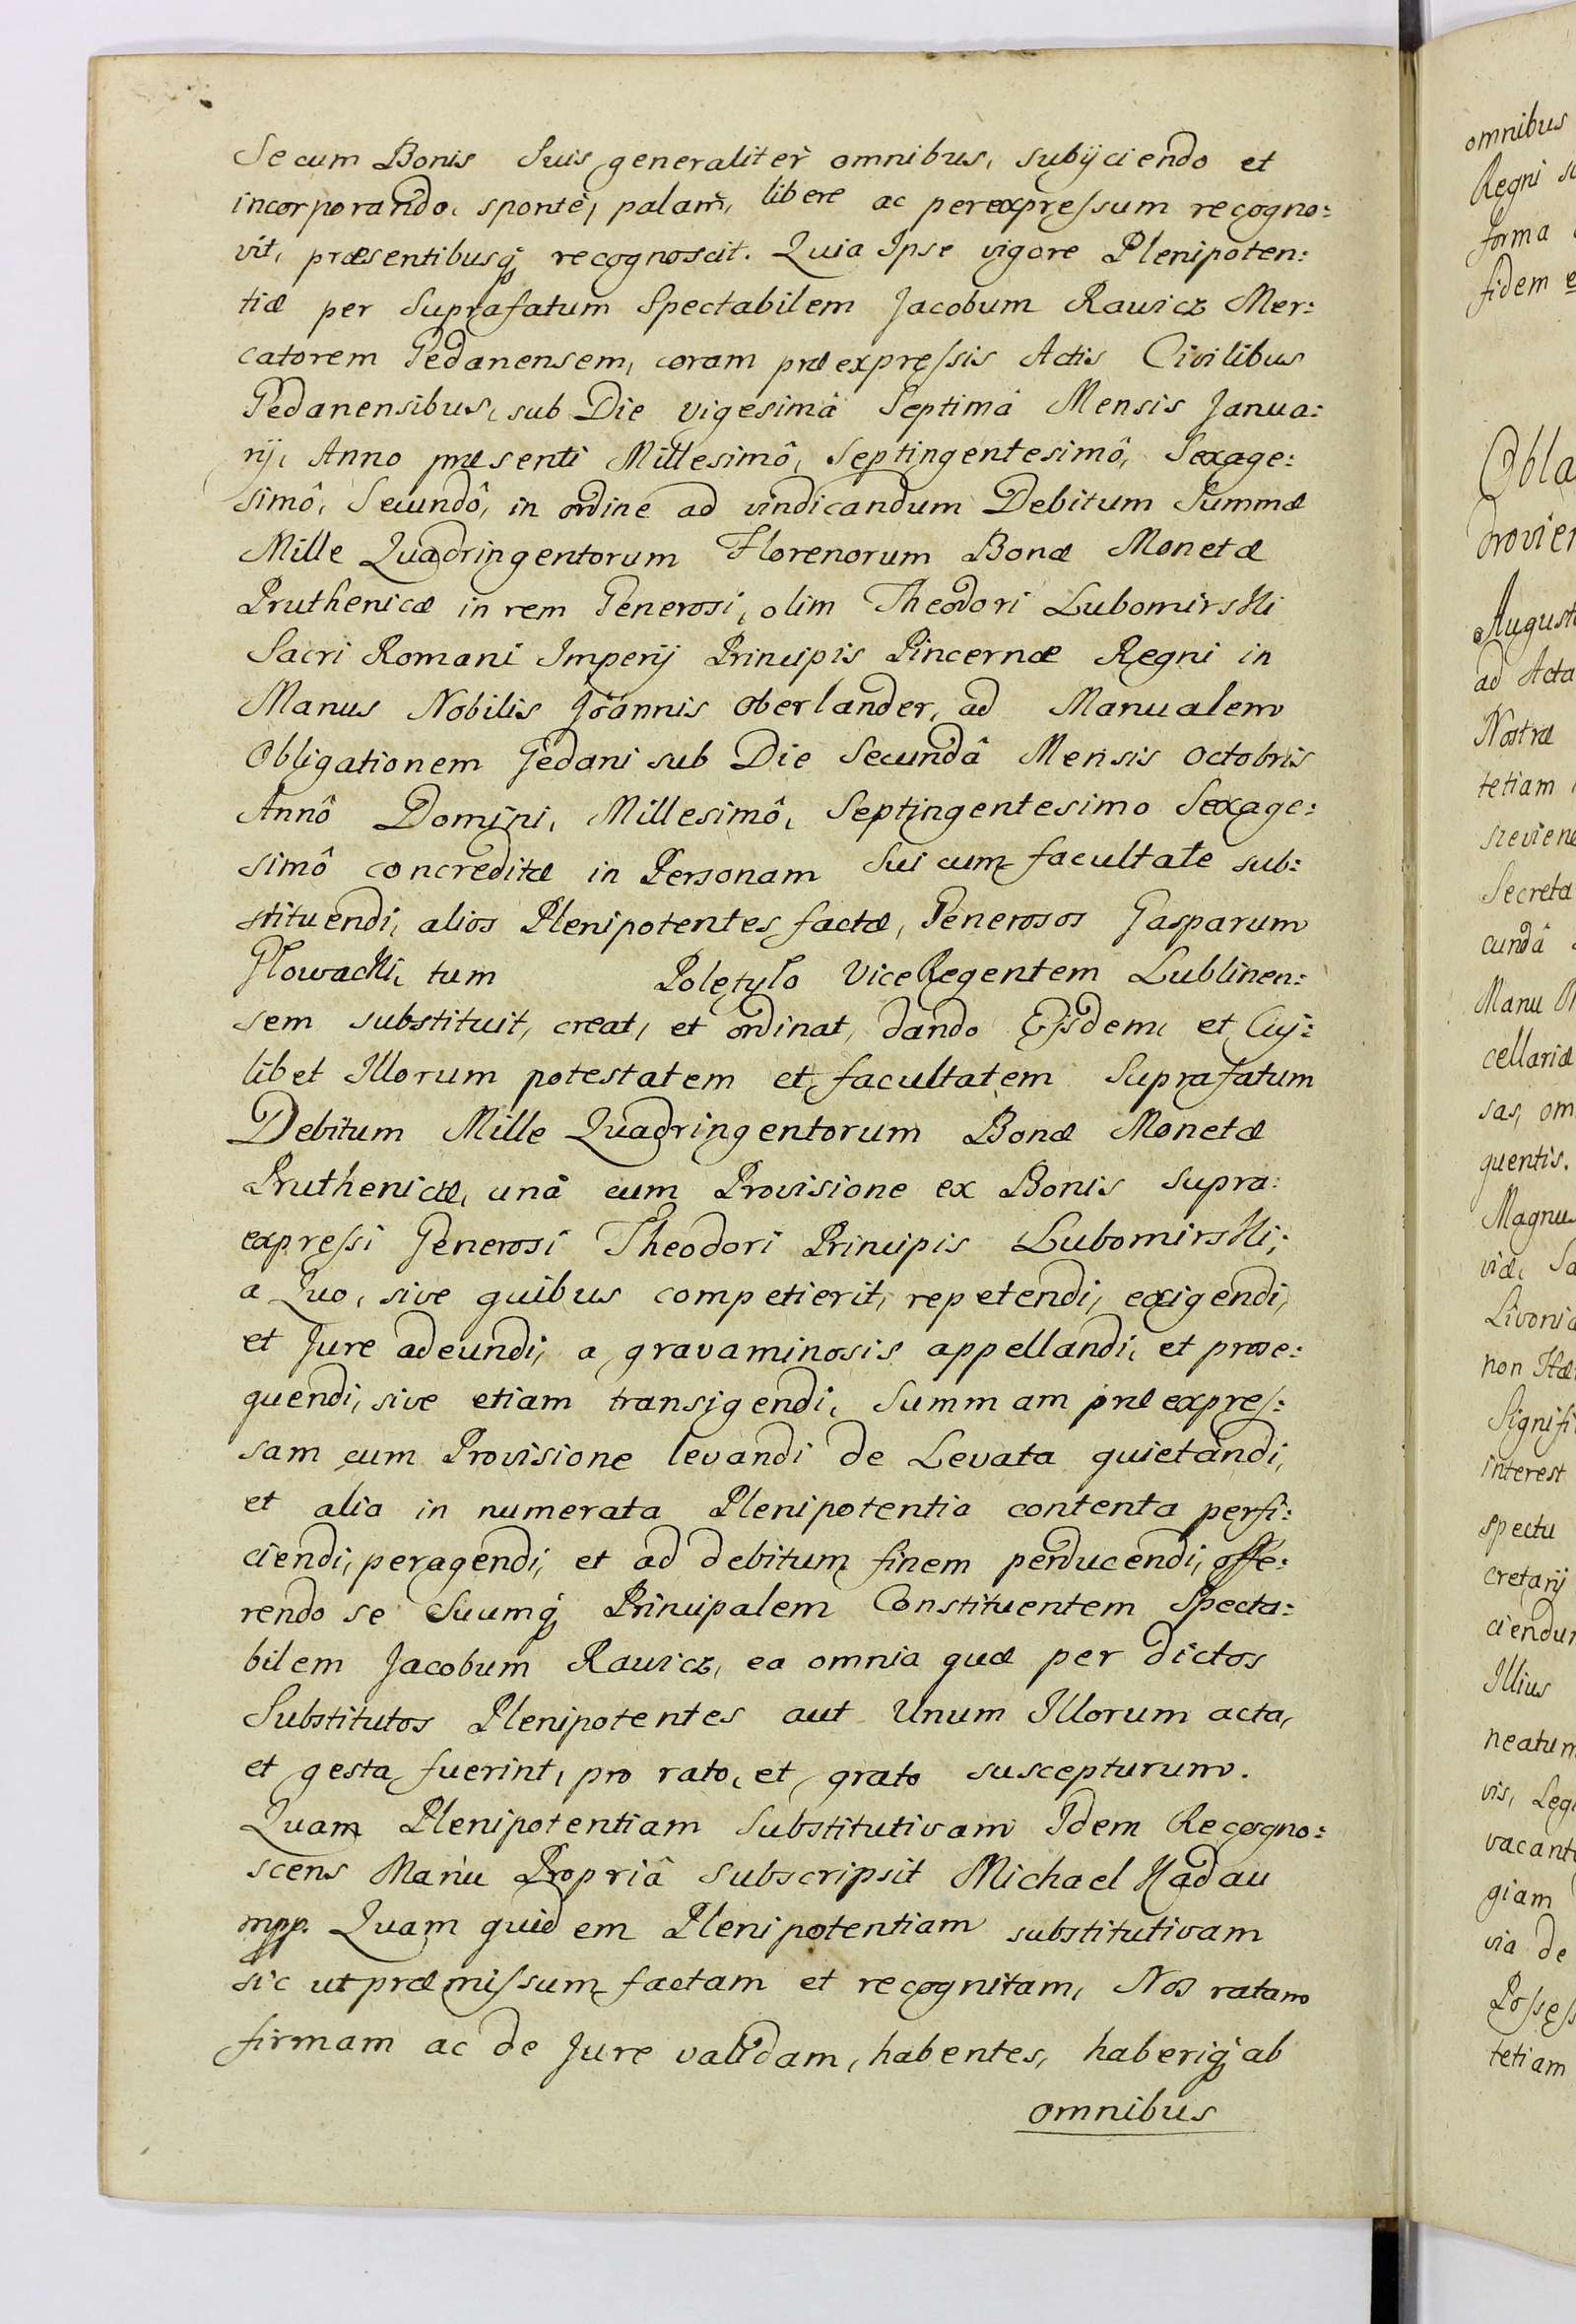 Se cum Bonis Suis generaliter omnibus, subijciendo et
incorporando, sponte, palam, libere ac per expressum recogno:
vit, præsentibusq recognoscit. Quia Ipse vigore Plenipoten:
tiæ per Suprafatum Spectabilem Jacobum Rawicz Mer:
catorem Gedanensem, coram præexpressis Actis Civilibus
Gedanensibus, sub Die vigesimâ Septimâ Mensis Janua:
rij, Anno præsenti Millesimô, Septingentesimô, Sexage:
simô, Secundô, in ordine ad vindicandum Debitum Summæ
Mille Quadringentorum Florenorum Bonæ Monetæ
Pruthenicæ in rem Generosi, olim Theodori Lubomirski
Sacri Romani Imperij Principis Pincernæ Regni in
Manus Nobilis Joannis Oberlander, ad Manualem
Obligationem Gedani sub Die Secundâ Mensis Octobris
Annô Domini, Millesimô, Septingentesimo Sexage:
simô concreditæ in Personam Sui cum facultate sub:
stituendi, alios Plenipotentes factæ, Generosos Gasparum
Głowacki, tum Poletyło ViceRegentem Lublinen:
sem substituit, creat, et ordinat, dando Eisdem, et Cuj:
libet Illorum potestatem et facultatem Suprafatum
Debitum Mille Quadringentorum Bonæ Monetæ
Pruthenicæ, unâ cum Provisione ex Bonis supra:
expressi Generosi Theodori Principis Lubomirski;
a Quo, sive quibus competierit, repetendi, exigendi,
et Jure adeundi, a gravaminosis appellandi, et prose:
quendi, sive etiam transigendi, Summam præexpres:
sam cum Provisione levandi de Levata quietandi,
et alia in numerata Plenipotentia contenta perfi:
ciendi, peragendi, et ad debitum finem perducendi, offe:
rendo se Suumq Principalem Constituentem Specta:
bilem Jacobum Rawicz, ea omnia quæ per dictos
Substitutos Plenipotentes aut Unum Illorum acta,
et gesta fuerint, pro rato, et grato suscepturum.
Quam Plenipotentiam Substitutivam Idem Recogno:
scens Manu Propriâ Subscripsit Michael Hadau
mpp. Quam quidem Plenipotentiam substitutivam
sic ut præmissum factam et recognitam, Nos ratam
firmam ac de Jure validam, habentes, haberiq ab
omnibus
omnibus
Regni
forma
fidem
Obla
Augusto
ad Acta
Nostræ
tetiam
Secreta
cundâ
Manu
cellariæ
sas, om
quentis.
Magnus
viæ,
Livoniæ
non
Signifi
interest
spectu
cretarij
ciendum
Illius
neatum
vis, Legi
vacant
giam
via de
Posses
tetiam